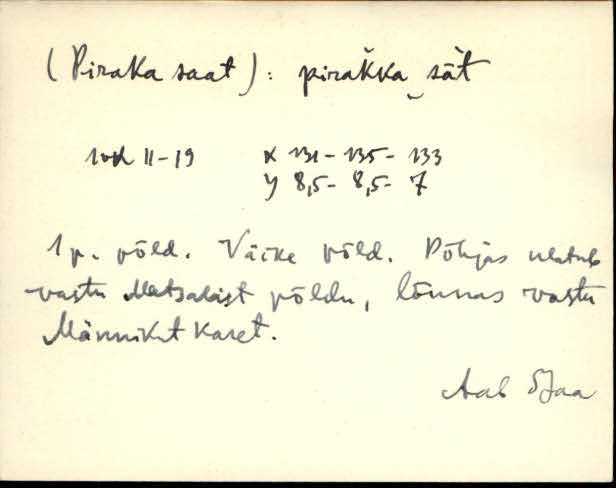 (Piraka saat): piràkka‿sāt
1vk 11-19 X 131 - 135 - 133
y 8,5 - 8,5 - 7
1 p. põld. Väike põld. Põhjas ulatub
vastu Metsalast põldu, lõunas vastu
Männikut Karet.
Aab